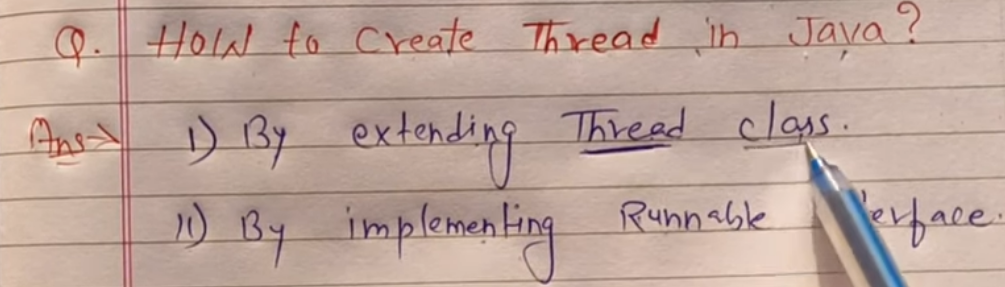 Q. How to Create Thread in Java?
Ans→ I) By extending Thread class.
II) By implementing Runnable erface.